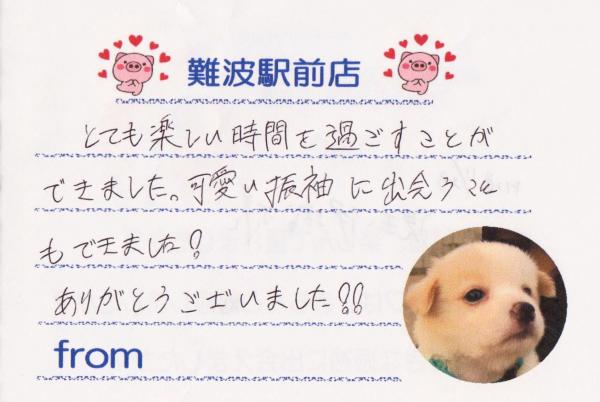 難波駅前店
とても楽しい時間を過ごすことが
できました。可愛い振袖に出会うこと
もできました!
ありがとうございました!!
from